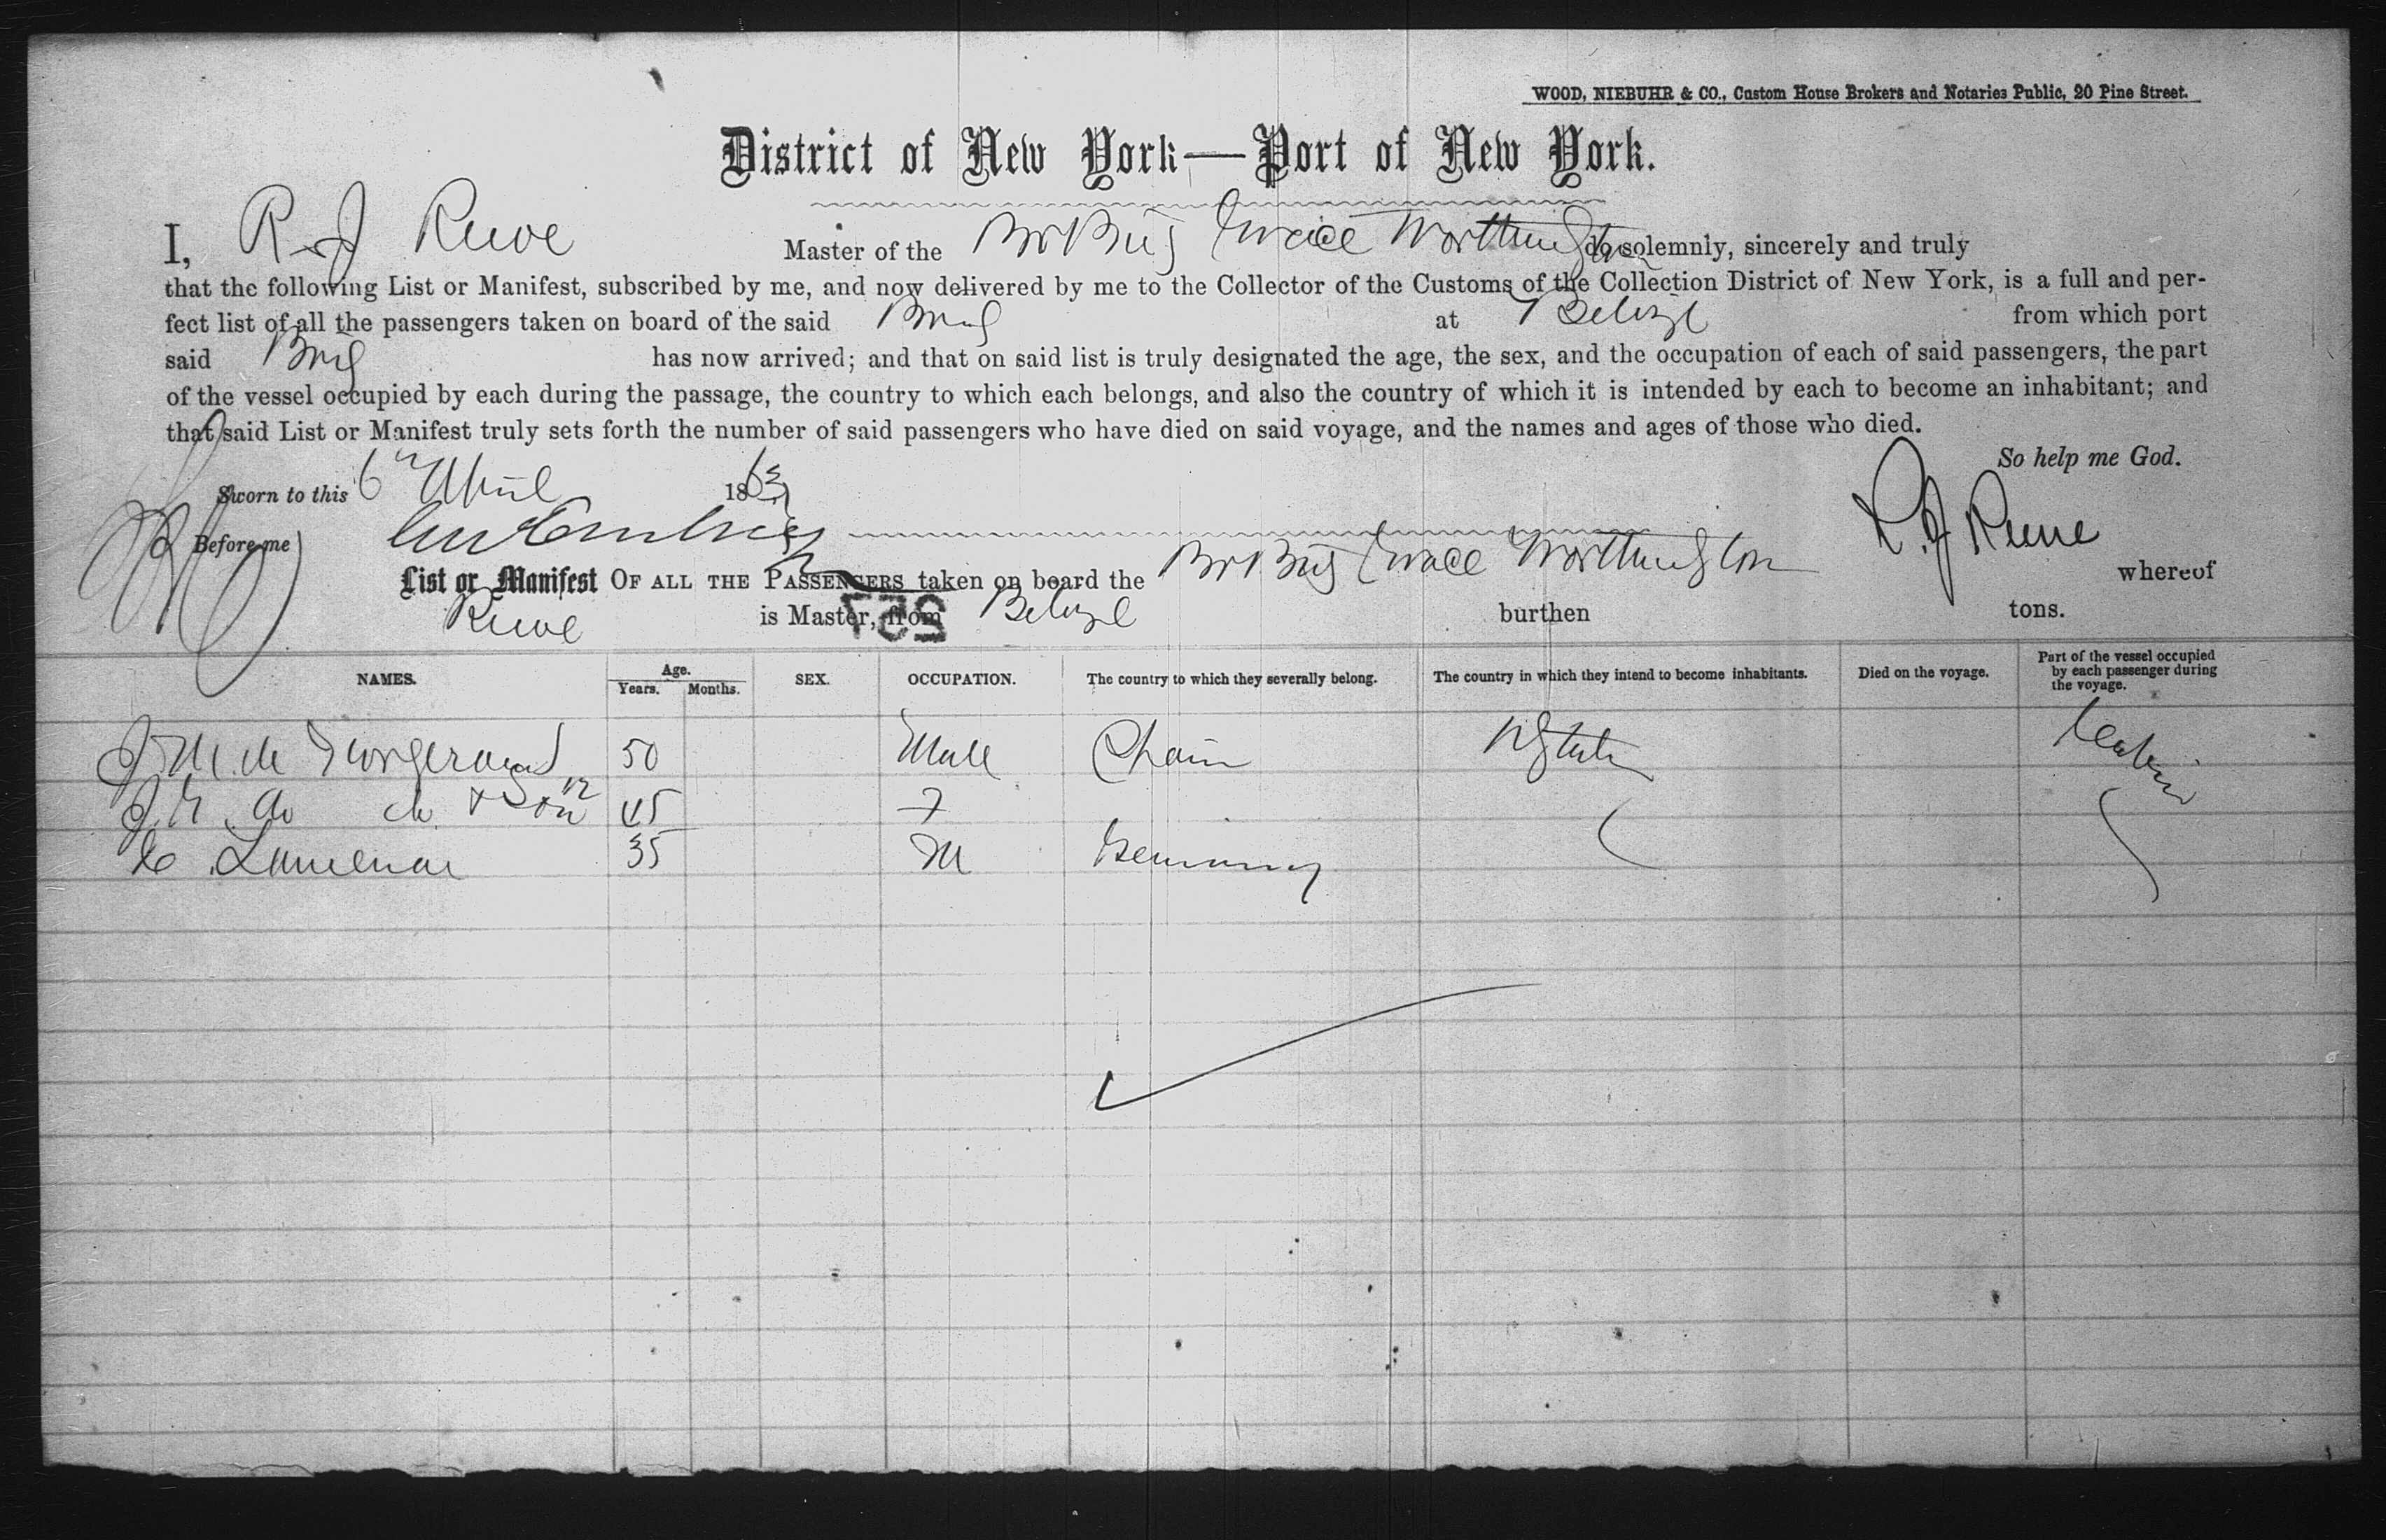 WOOD, NIEBUHR & CO., Custom House Brokers and Notaries Public, 20 Pine Street.
District of New York—Port of New York.
I, R J Reeve Master of the Br Brig Grace Worthington do solemnly, sincerely and truly
that the following List or Manifest, subscribed by me, and now delivered by me to the Collector of the Customs of the Collection District of New York, is a full and per-
fect list of all the passengers taken on board of the said Brig at Belize from which port
said Brig has now arrived; and that on said list is truly designated the age, the sex, and the occupation of each of said passengers, the part
of the vessel occupied by each during the passage, the country to which each belongs, and also the country of which it is intended by each to become an inhabitant; and
that said List or Manifest truly sets forth the number of said passengers who have died on said voyage, and the names and ages of those who died.
So help me God.
Sworn to this 6th April 1863
R. J Reeve
Before me
List or Manifest OF ALL THE PASSENGERS taken on board the Br Brig Grace Worthington whereof
Reeve is Master, from Belize burthen tons.
NAMES. Age. Years. Months. SEX. OCCUPATION. The country to which they severally belong. The country in which they intend to become inhabitants. Died on the voyage. Part of the vessel occupied by each passenger during the voyage.
J M. de 50 Male Spain U States Cabin
J. do do & Son 12 45 F
35 M Germany